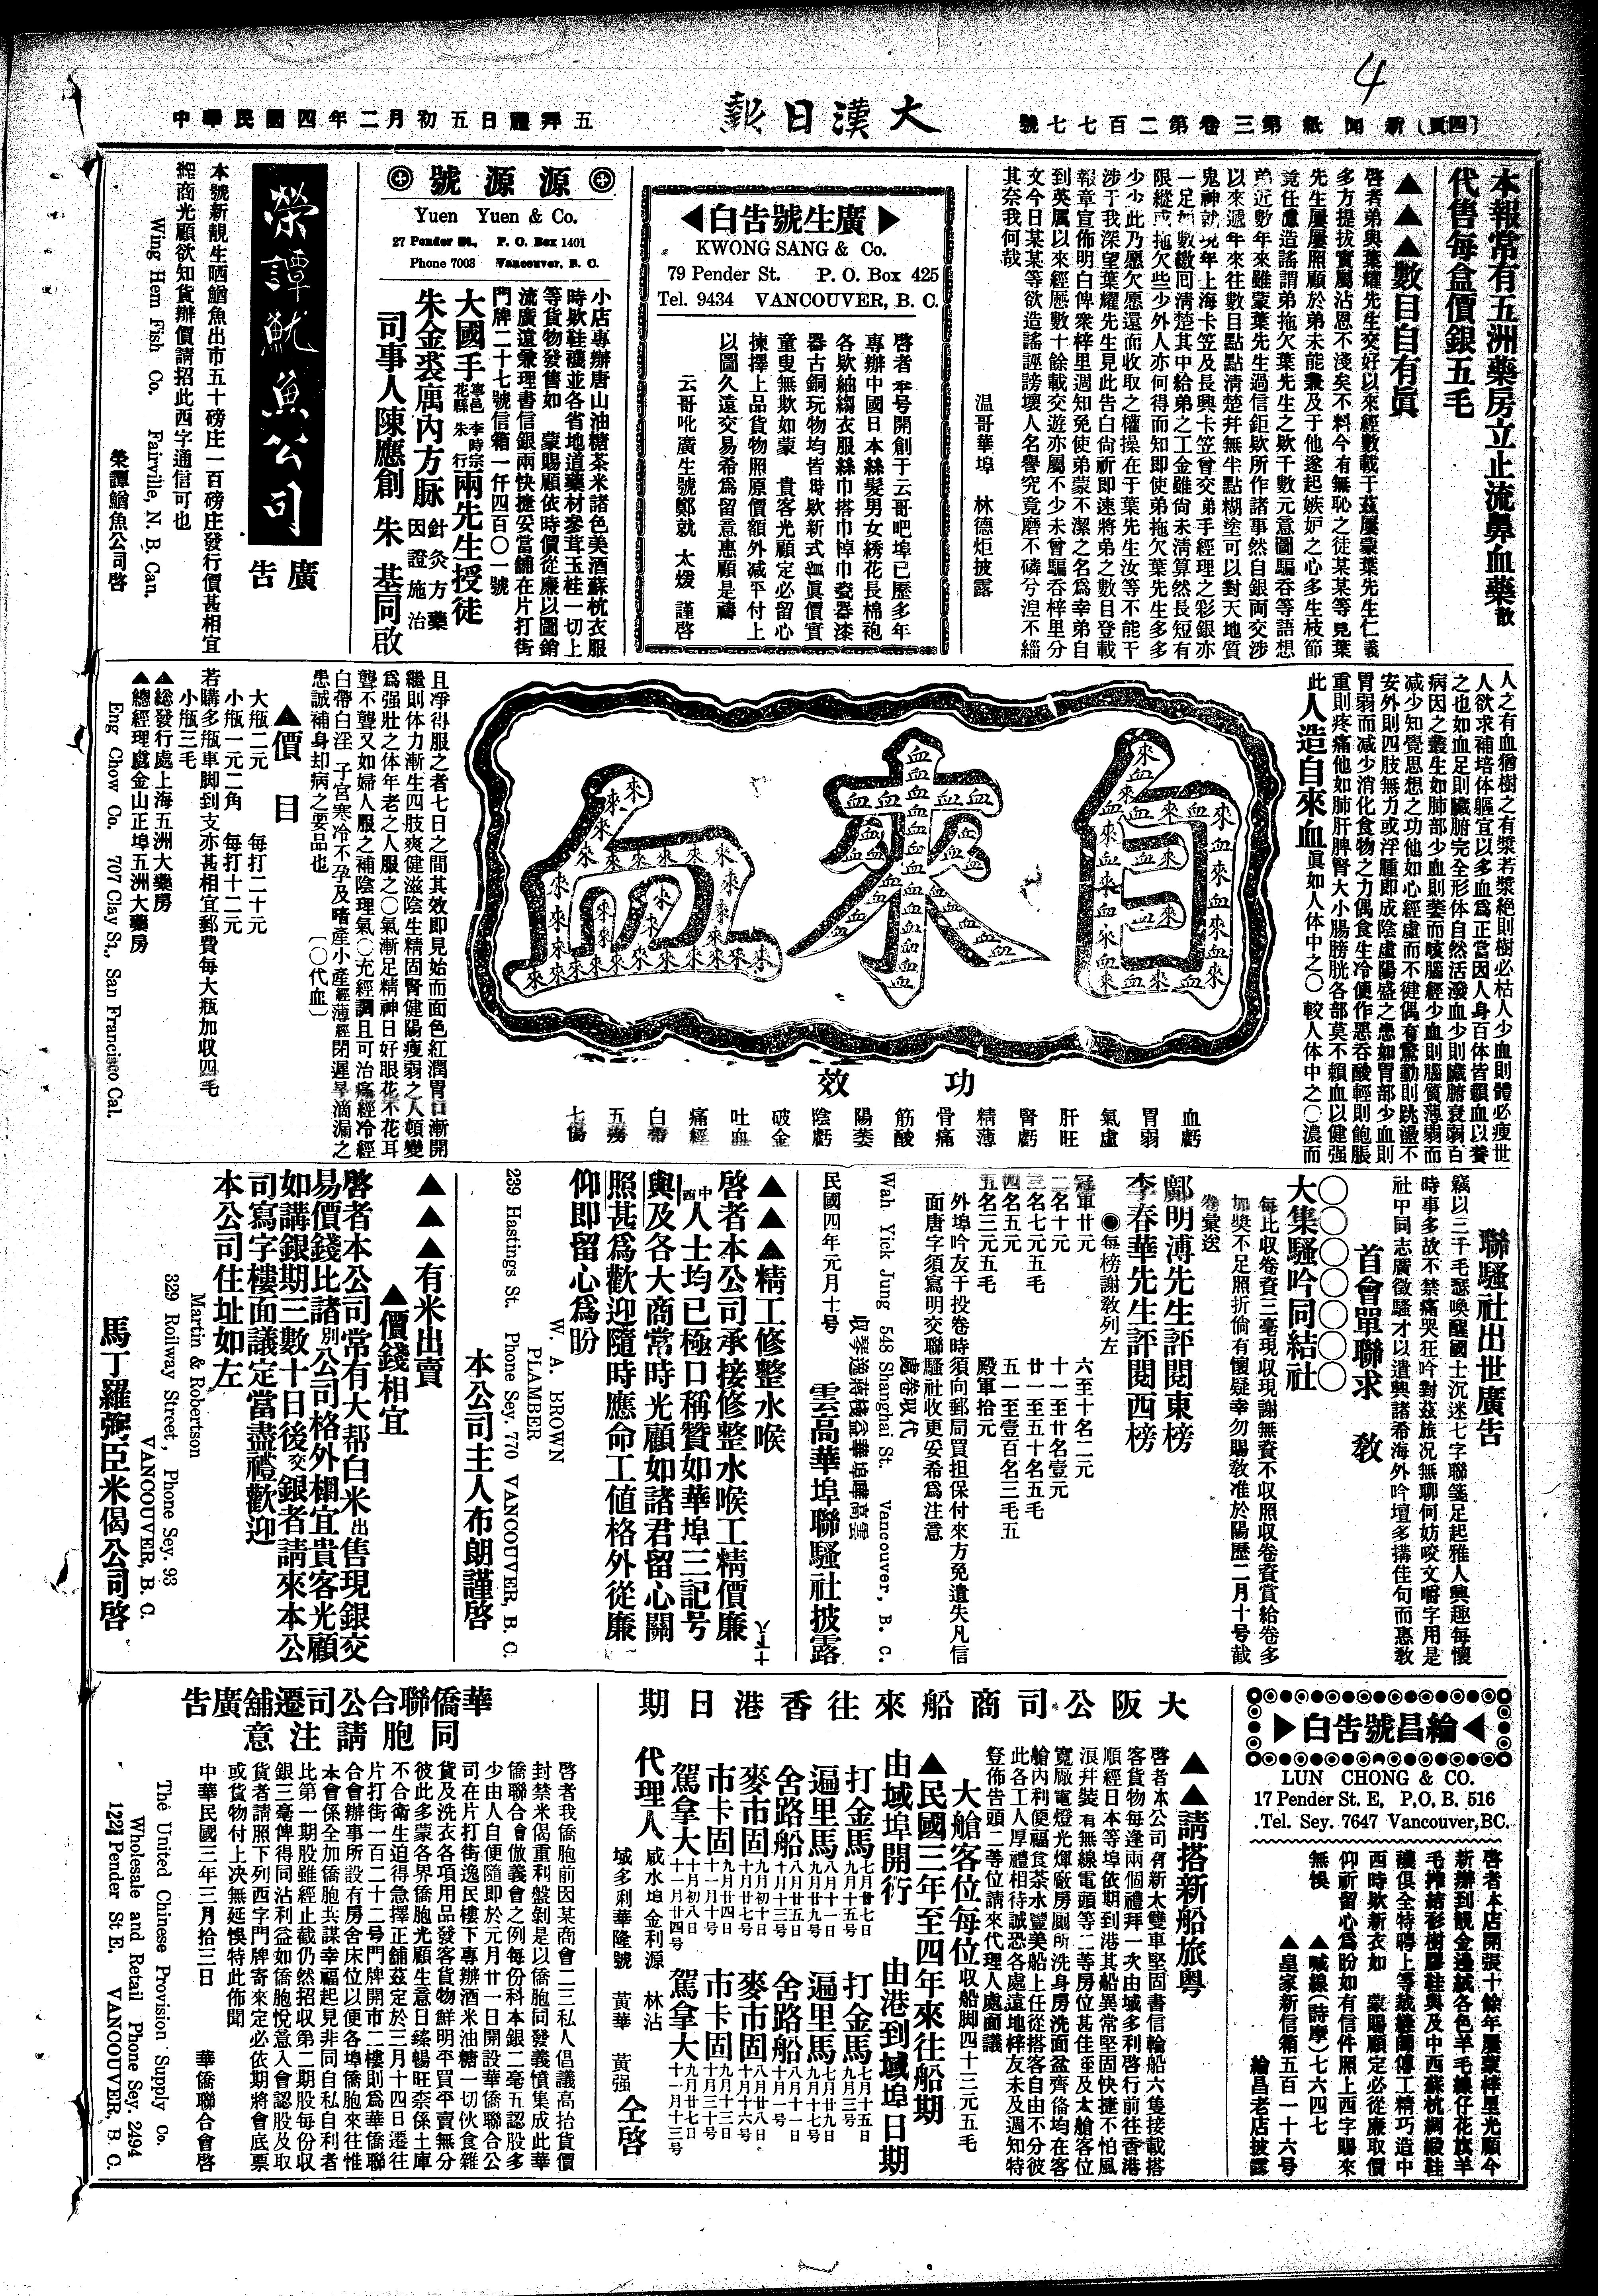 4
號七七百二第卷三第 紙聞新 (四頁)
大漢日報
中華民國四年二月初五日禮拜五
本報常有五洲藥房立止流鼻血藥散
代售每盒價銀五毛
▲▲▲數目自有眞
啓者弟與葉耀先生交好以來經數載于茲屢蒙葉先生仁義
多方提拔實屬沾恩不淺矣不料今有無恥之徒某某等見葉
先生屢屢照顧於弟未能兼及于他遂起嫉妒之心多生枝節
竟任慮造謠謂弟拖欠葉先生之欵千數元意圖騙呑等語想
弟近數年來雖蒙葉先生過信鉅欵所作諸事然自銀両交涉
以來遞年來往數目點點清楚幷無半點糊塗可以對天地質
鬼神就現年上海卡笠及長興卡笠曾交弟手經理之彩銀亦
一足如數繳回清楚其中給弟之工金雖尙未清算然長短有
限縱或拖欠些少外人亦何得而知即使弟拖欠葉先生多多
少少此乃愿欠愿還而收取之權操在于葉先生汝等不能干
涉于我深望葉耀先生見此告白尙祈即速將弟之數目登載
報章宣佈明白俾衆梓里週知免使弟蒙不潔之名爲幸弟自
到英属以來經歷數十餘載交遊亦屬不少未曾騙呑梓里分
文今日某某等欲造謠誣謗壞人名譽究竟磨不磷兮涅不緇
其奈我何哉
温哥華埠 林德炬披露
廣生號告白
KWONG SANG & Co.
79 Pender St. P. O. Box 425
Tel. 9434 VANCOUVER, B. C.
啓者本号開創于云哥吧埠已歷多年
專辦中國日本絲髮男女綉花長棉袍
各欵紬縐衣服絲巾搭巾棹巾瓷器漆
器古銅玩物均皆時欵新式伽眞價實
童叟無欺如蒙 貴客光顧定必留心
揀擇上品貨物照原價額外减平付上
以圖久遠交易希爲留意惠顧是禱
云哥吪廣生號鄭就 太煖 謹啓
源源號
Yuen Yuen & Co.
27 Pender St., P. O. Box 1401
Phone 7003 Vancouver, B. C.
小店專辦唐山油糖茶米諸色美酒蘇杭衣服
時欵鞋襪並各省地道藥材參茸玉桂一切上
等貨物發售如 蒙賜顧依時價從廉以圖銷
流廣遠兼理書信銀兩快捷妥當舖在片打街
門牌二十七號信箱一仟四百〇一號
大國手寧邑李時宗花縣朱行兩先生授徒
朱金裘属內方脉 針灸方藥 因證施治
司事人陳應創 朱基同啟
榮譚魷魚公司
廣告
本號新靚生晒鱿魚出市五十磅庄一百磅庄發行價甚相宜
經商光顧欲知貨辦價請招此西字通信可也
Wing Hem Fish Co. Fairville, N. B. Can.
榮譚鱿魚公司啓
人之有血猶樹之有漿若漿絶則樹必枯人少血則體必瘦世
人欲求補培体軀宜以多血爲正當因人身百体皆賴血以養
之也如血足則臟腑完全形体自然活潑血少則臟腑衰弱百
病因之叢生如肺部少血則萎而咳腦經少血則腦質薄弱而
减少知覺思想之功他如心經虛而不健偶有驚動則跳盪不
安外則四肢無力或浮腫即成陰虛陽盛之患如胃部少血則
胃弱而减少消化食物之力偶食生冷便作惡呑酸輕則飽脹
重則疼痛他如肺肝脾腎大小腸膀胱各部莫不賴血以健强
此人造自來血眞如人体中之〇較人体中之〇濃而
自來血
功效
血虧
胃弱
氣虛
肝旺
腎虧
精薄
骨痛
筋酸
陽萎
陰虧
破金
吐血
痛經
白帶
五癆
七傷
且凈得服之者七日之間其效即見始而面色紅潤胃口漸開
繼則体力漸生四肢爽健滋陰生精固腎健陽瘦弱之人頓變
爲强壯之体年老之人服之〇氣漸足精神日好眼花不花耳
聾不聾又如婦人服之補陰理氣〇充經調且可治痛經冷經
白帶白淫 子宮寒冷不孕及嗜產小產經薄經閉遲早滴漏之
患誠補身却病之要品也 〔〇代血〕
▲價目
大瓶二元 每打二十元
小瓶一元二角 每打十二元
若購多瓶車脚到支亦甚相宜郵費每大瓶加収四毛
小瓶三毛
▲総發行處上海五洲大藥房
▲總經理處金山正埠五洲大藥房
Eng Chow Co. 707 Clay St., San Francisco Cal.
聯騷社出世廣告
竊以三千毛瑟喚醒國士沉迷七字聯箋足起雅人興趣每懷
時事多故不禁痛哭狂吟對茲旅况無聊何妨咬文嚼字用是
社甲同志廣徵騷才以遣興諸希海外吟壇多搆佳句而惠敎
首會單聯求 敎
〇〇〇〇〇〇〇
大集騷吟同結社
每比収卷資三毫現収現謝無資不収照収卷資賞給卷多
加奬不足照折倘有懷疑幸勿賜敎准於陽歷二月十号截
卷彙送
鄺明溥先生評閱東榜
李春華先生評閱西榜
●每榜謝敎列左
冠軍廿元 六至十名二元
二名十元 十一至廿名壹元
三名七元五毛 廿一至五十名五毛
四名五元 五一至壹百名三毛五
五名三元五毛 殿軍拾元
外埠吟友于投卷時須向郵局買担保付來方免遺失凡信
面唐字須寫明交聯騷社收更妥希爲注意
處卷収代
Wah Yick Jung 548 Shanghai St. Vancouver, B. C.
収琴逸蔣棧益華埠華高雲
民國四年元月十号 雲高華埠聯騷社披露
▲▲▲精工修整水喉
啓者本公司承接修整水喉工精價廉
中西人士均已極口稱贊如華埠三記号
與及各大商常時光顧如諸君留心關
照甚爲歡迎隨時應命工値格外從廉
仰即留心爲盼
W. A. BROWN
PLAMBER
239 Hastings St. Phone Sey. 770 VANCOUVER, B. C.
本公司主人布朗謹啓
▲▲▲有米出賣
▲價錢相宜
啓者本公司常有大帮白米出售現銀交
易價錢比諸別公司格外相宜貴客光顧
如講銀期三數十日後交銀者請來本公
司寫字樓面議定當盡禮歡迎
本公司住址如左
Martin & Robertson
329 Roilway Street, Phone Sey. 93
VANCOUVER, B. C.
馬丁羅弼臣米偈公司啓
綸昌號告白
LUN CHONG & CO.
17 Pender St. E, P. O. B. 516
Tel. Sey. 7647 Vancouver, BC.
啓者本店開張十餘年屢蒙梓里光顧今
新辦到靚金邊絨各色羊毛線仔花旗羊
毛搾結衫樹膠鞋與及中西蘇杭綢緞鞋
襪俱全特聘上等裁縫師傅工精巧造中
西時欵新衣如 蒙賜顧定必從廉取價
仰祈留心爲盼如有信件照上西字賜來
無悞 ▲喊線(詩摩)七六四七
▲皇家新信箱五百一十六号
綸昌老店披露
大阪公司商船來往香港日期
▲▲請搭新船旅粵
啓者本公司有新太雙車堅固書信輪船六隻接載搭
客貨物每逢兩個禮拜一次由域多利啓行前往香港
順經日本等埠依期到港其船異常堅固快捷不怕風
浪幷裝有無線電頭等二等房位甚佳至及大艙客位
寬厰電燈光煇廠房厠所洗身房洗面盆齊俻均在客
艙內利便福食茶水豐美船上任從搭客自由不分彼
此各工人厚禮相待誠恐各處遠地梓友未及週知特
登佈告頭二等位請來代理人處面議
大艙客位每位収船脚四十三元五毛
▲民國三年至四年來往船期
由域埠開行 由港到域埠日期
打金馬 七月廿七日 九月十五号 打金馬 七月十五日 九月三号
遍里馬 八月十一日 九月廿九号 遍里馬 七月廿九日 九月十七号
舍路船 八月廿五日 十月十三号 舍路船 八月十一日 十月一号
麥市固 九月初十日 十月廿七号 麥市固 八月廿八日 十月十六号
市卡固 九月廿四日 十一月十号 市卡固 九月十三日 十月三十号
駕拿大 十月初八日 十一月廿四号 駕拿大 九月廿七日 十一月十三号
代理人 咸水埠金利源 林沾 域多利華隆號 黃華 黃强 仝啓
華僑聯合公司遷舖廣告
同胞請注意
啓者我僑胞前因某商會二三私人倡議高抬貨價
封禁米偈重利盤剝是以僑胞同發義憤集成此華
僑聯合會倣義會之例每份科本銀二毫五認股多
少由人自便隨即於元月廿一日開設華僑聯合公
司在片打街逸民樓下專辦酒米油糖一切伙食雜
貨及洗衣各項用品發客貨物鮮明平買平賣無分
彼此多蒙各界僑胞光顧生意日臻暢旺柰係土庫
不合衛生迫得急擇正舖茲定於三月十四日遷往
片打街一百二十二号門牌開市二樓則爲華僑聯
合會辦事所設有房舍床位以便各埠僑胞來往惟
本會係全加僑胞共謀幸福起見非同自私自利者
比第一期股雖經止截仍然招収第二期股每份収
銀三毫俾得同沾利益如僑胞悅意入會認股及取
貨者請照下列西字門牌寄來定必依期將會底票
或貨物付上决無延悞特此佈聞
中華民國三年三月拾三日 華僑聯合會啓
The United Chinese Provision Supply Co.
Wholesale and Retail Phone Sey. 2494
122½ Pender St E. VANCOUVER, B. C.